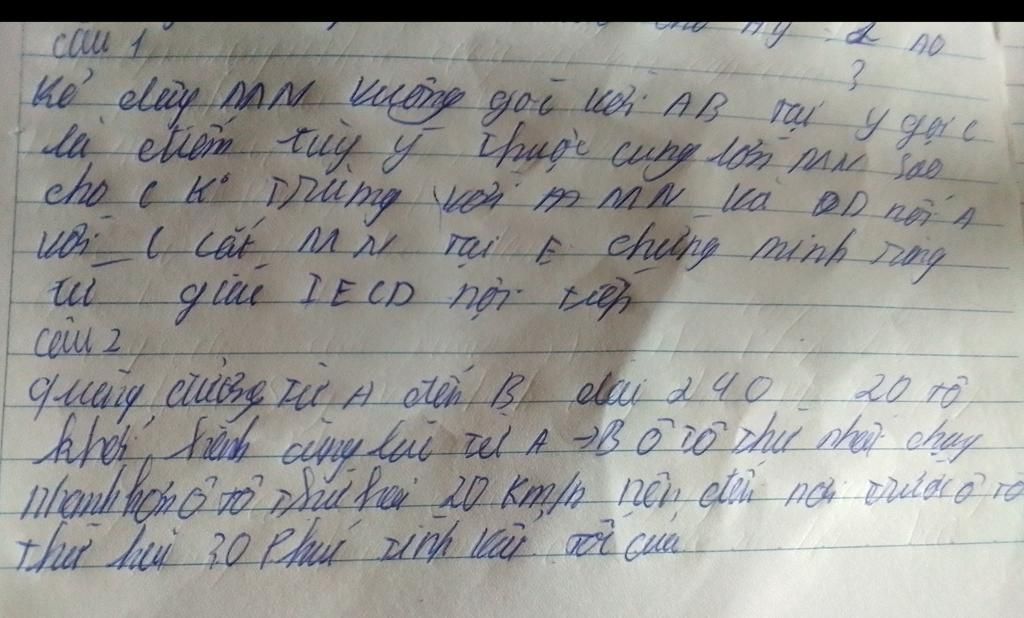 Ay 2 AO
Câu 1
3
Kẻ dây MN vuông góc với AB tại y gọi C
là điểm tùy ý thuộc cung lớn MN sao
cho C K° Trùng với MN và D nối A
với C cắt MN tại E chứng minh rằng
tứ giác IECD nội tiếp
Câu 2
quãng đường từ A đến B dài 240 20 tô
khởi hành cùng lúc từ A →B ô tô thứ nhất chạy
nhanh hơn ô tô thứ hai 20 Km/h nên đến nơi trước ô tô
thứ hai 30 Phút tính vận tốc của